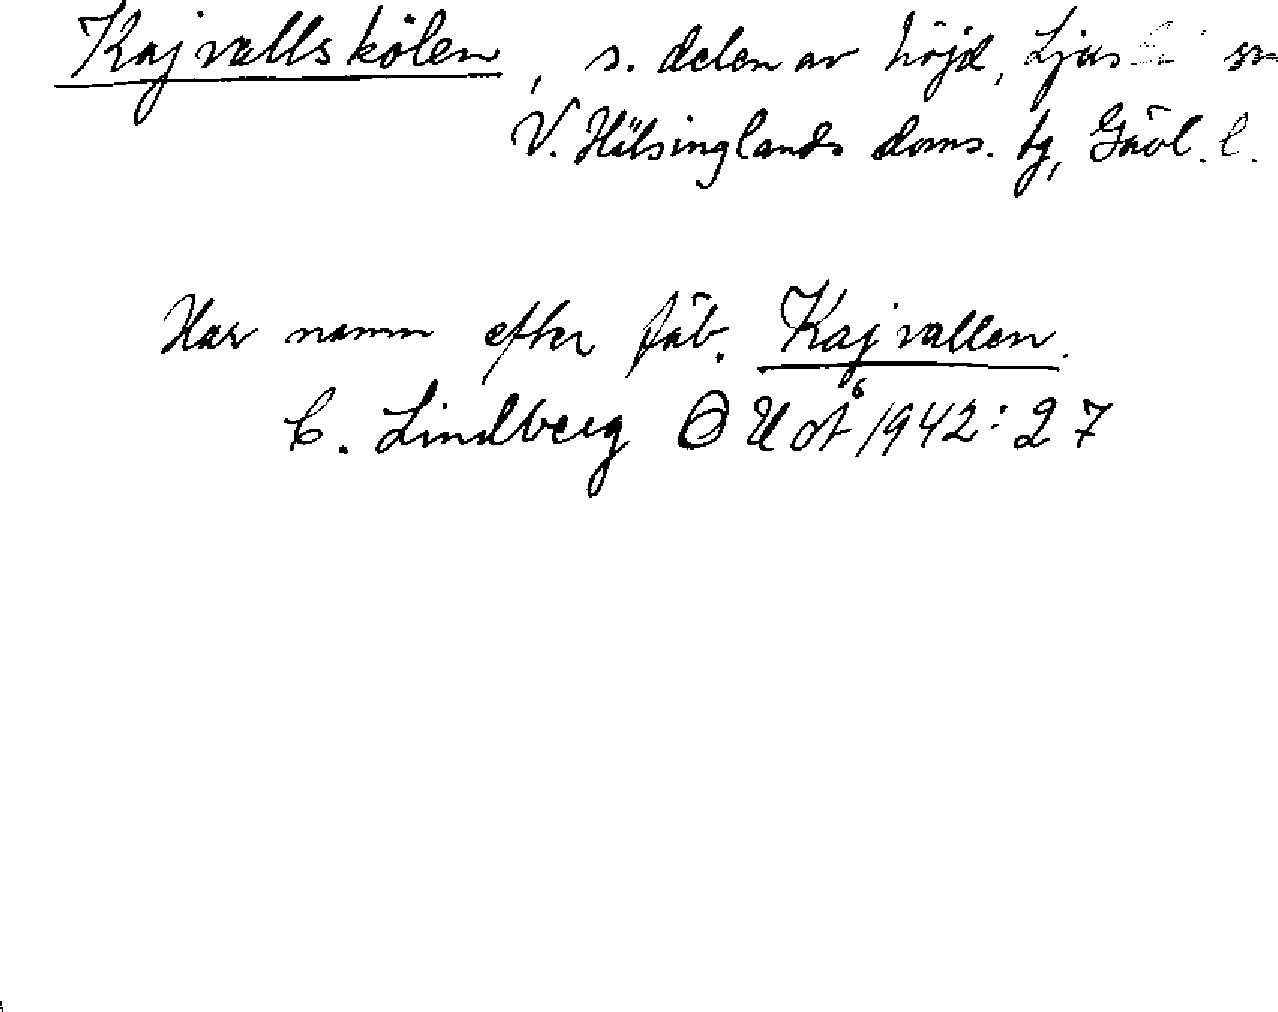 Kajvallskölen, s. delen av höjd, sn
V. Hälsinglands doms. tg, Gävl. l.
Har namn efter fäb. Kajvallen.
C. Lindberg 1942: 27